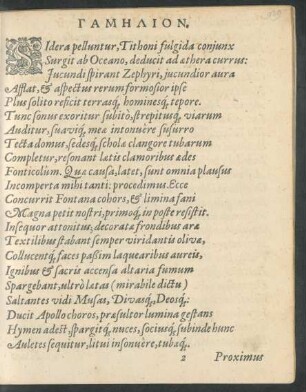 ΓΑΜΗΛΙΟΝ.
SIdera pelluntur, Tithoni fulgida conjunx
Surgit ab Oceano, deducit ad æthera currus:
Jucundi spirant Zephyri, jucundior aura
Afflat, & aspectus rerum formosior ipse
Plus solito reficit terrasq́, hominesq́, tepore.
Tunc sonus exoritur subitò, strepitusq́, viarum
Auditur, suaviq́, meæ intonuêre susurro
Tecta domus, sedesq́, scholæ clangore tubarum
Completur, resonant lætis clamoribus ædes
Fonticolûm. Quæ causa, latet, sunt omnia plausus
Incomperta mihi tanti: procedimus. Ecce
Concurrit Fontana cohors, & limina fani
Magna petit nostri, primoq́, in poste resistit.
Insequor attonitus, decoratæ frondibus aræ
Textilibus stabant semper viridantis olivæ,
Collucentq́, faces passim laquearibus aureis,
Ignibus & sacris accensa altaria fumum
Spargebant, ultrò lætas (mirabile dictu)
Saltantes vidi Musas, Divasq́, Deosq́;
Ducit Apollo choros, præsultor lumina gestans
Hymen adest, spargitq́, nuces, sociusq́, subinde hunc
Auletes sequitur, litui insonuêre, tubæq́.
2 Proximus